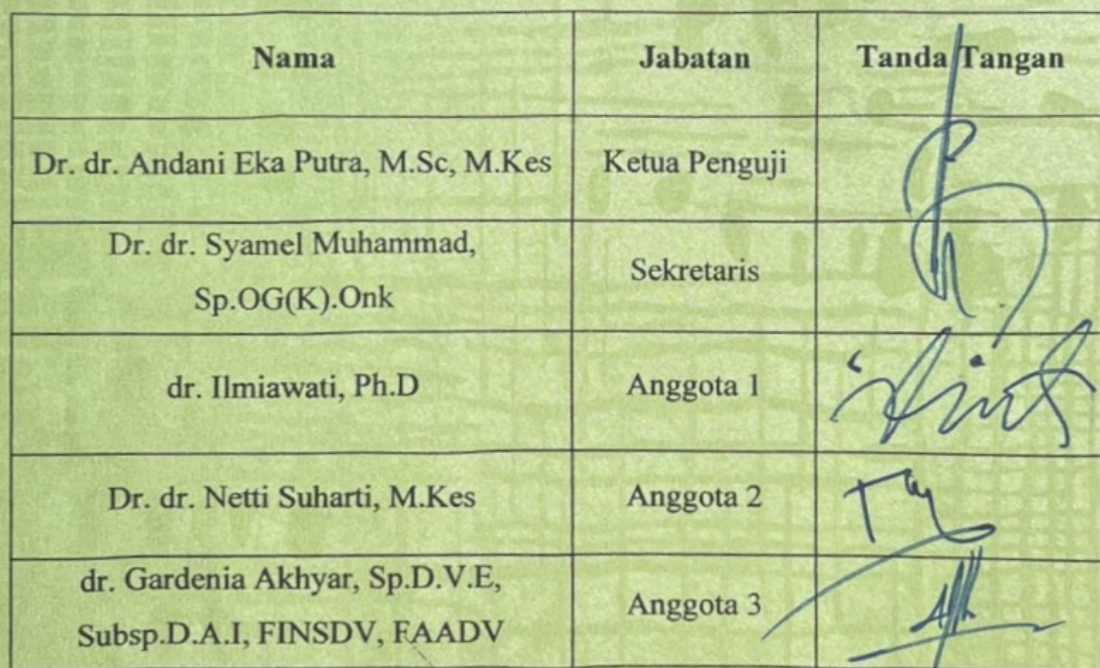 Nama Jabatan Tanda Tangan
Dr. dr. Andani Eka Putra, M.Sc, M.Kes Ketua Penguji
Dr. dr. Syamel Muhammad,
Sp.OG(K).Onk
Sekretaris
dr. Ilmiawati, Ph.D Anggota 1
Dr. dr. Netti Suharti, M.Kes Anggota 2
dr. Gardenia Akhyar, Sp.D.V.E,
Subsp.D.A.I, FINSDV, FAADV
Anggota 3